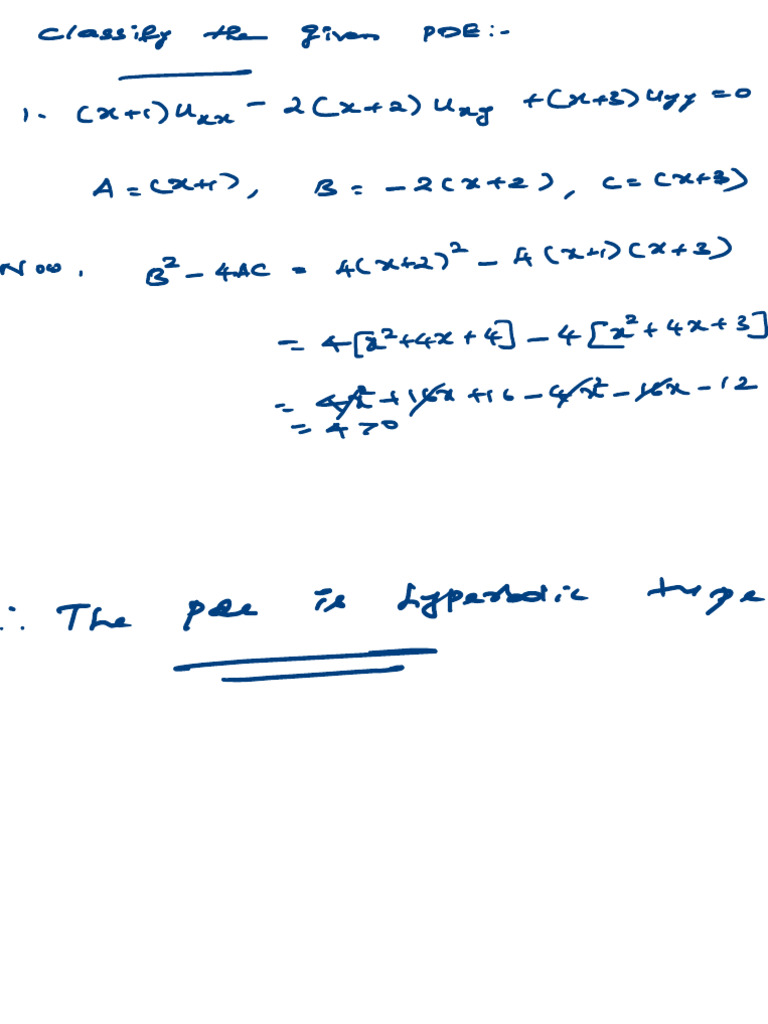 Classify the given PDE:-
1. (x+1)uₓₓ - 2(x+2)uₓᵧ + (x+3)uᵧᵧ = 0
A = (x+1), B = -2(x+2), C = (x+3)
Now, B² - 4AC = 4(x+2)² - 4(x+1)(x+3)
= 4[x²+4x+4] - 4[x²+4x+3]
= 4x² + 16x + 16 - 4x² - 16x - 12
= 4 > 0
∴ The PDE is hyperbolic type